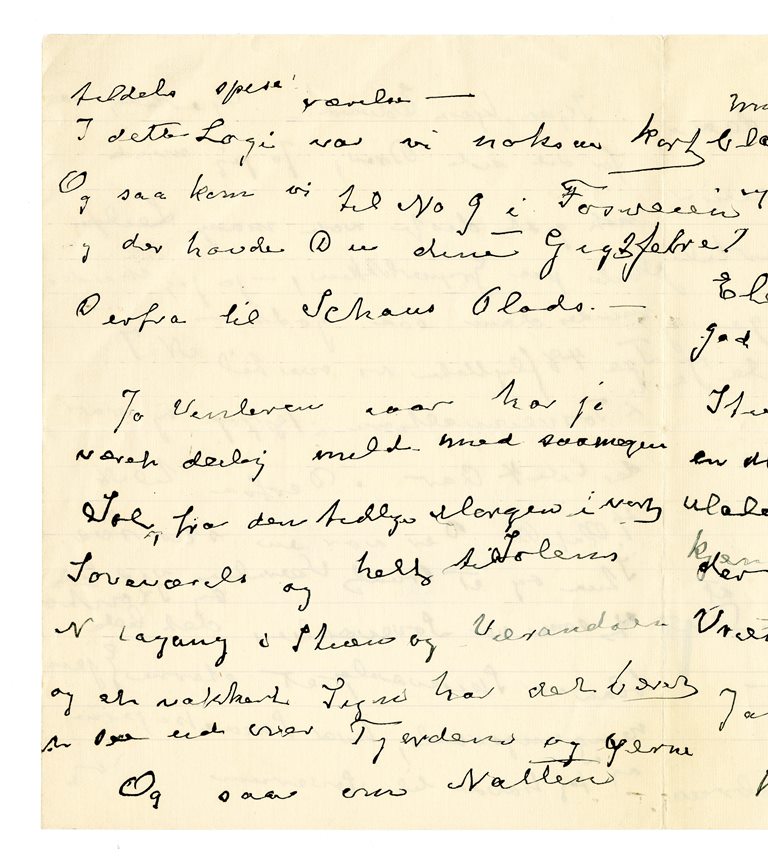 tildels spise værelse —
I dette Logi var vi noksaa kort
Og saa kom vi til No 9 i Fosveien
og der havde Du dine Gigtfebre?
Derfra til Schaus Plads. —
Ja Vinteren iaar har je
været deilig mild med saamegen
Sol, fra den tidlige Morgen i vort
Soveværels og helt til Solens
Nedgang i Stuen og Verandaen
og et vakkert Syn har det været
at se ud over Fjorden og Øerne
Og saa om Natten
Ele
god
en
der
Ja